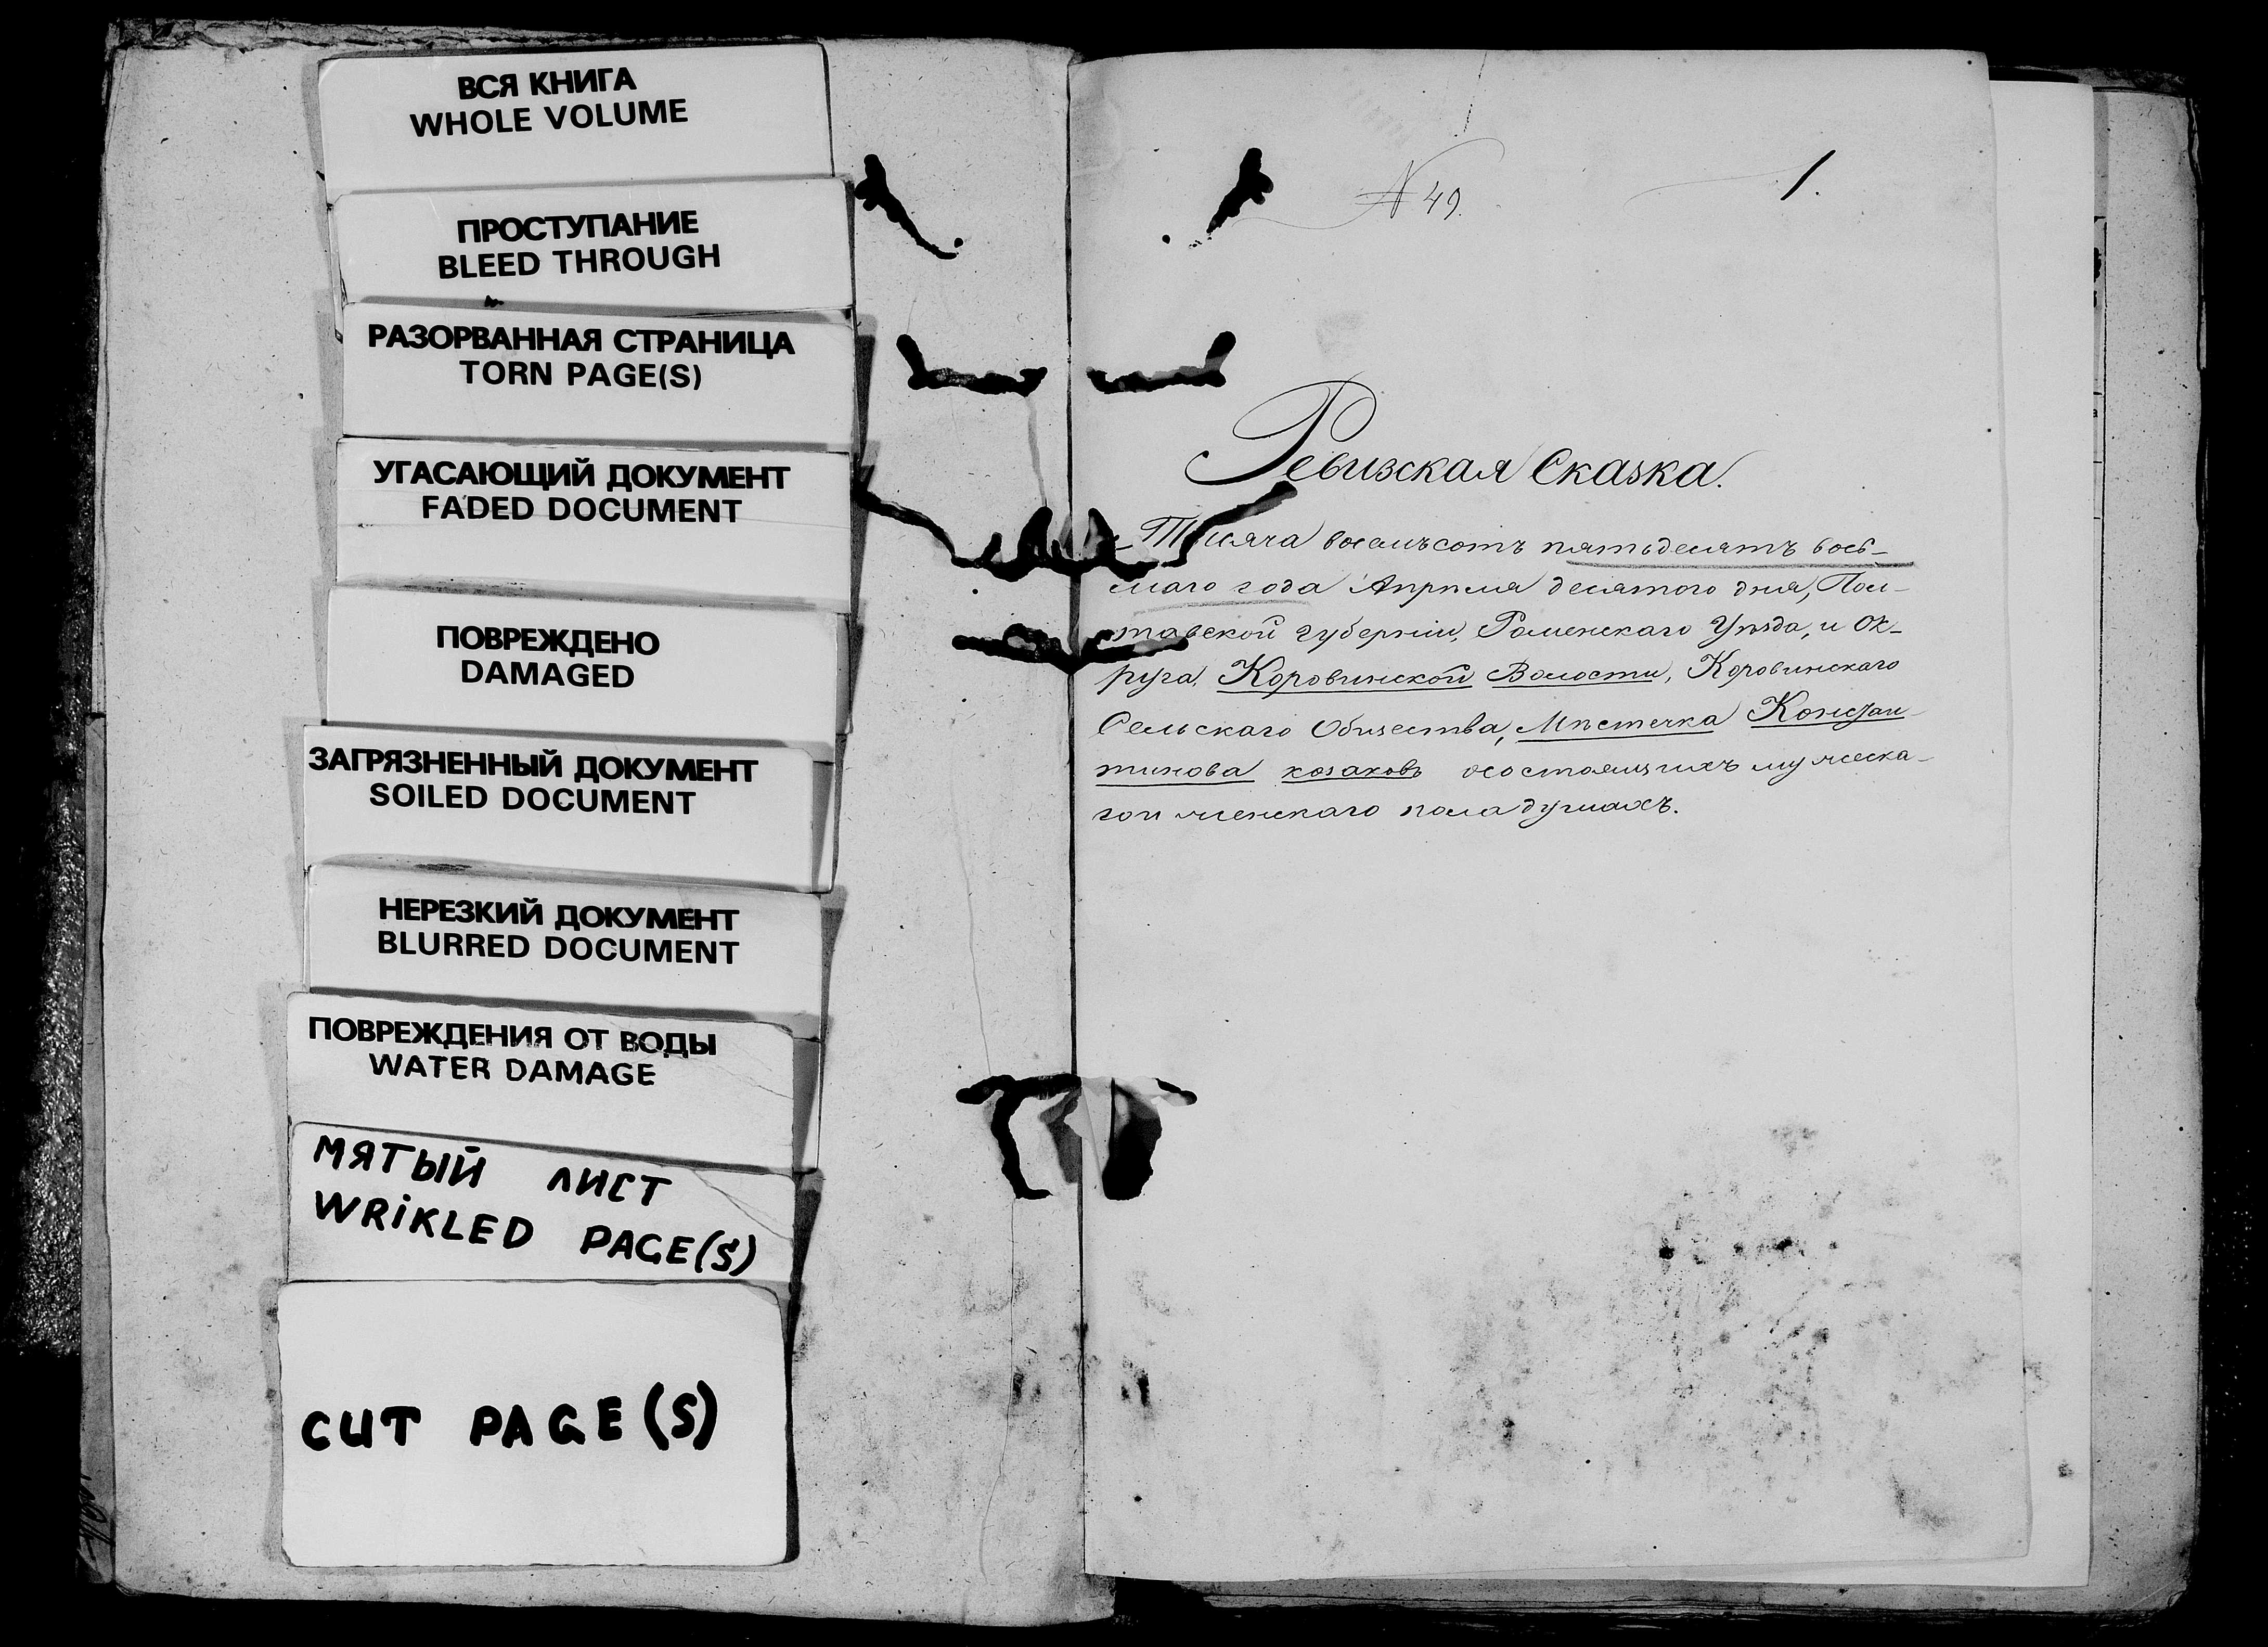 ВСЯ КНИГА
WHOLE VOLUME
ПРОСТУПАНИЕ
BLEED THROUGH
РАЗОРВАННАЯ СТРАНИЦА
TORN PAGE(S)
УГАСАЮЩИЙ ДОКУМЕНТ
FADED DOCUMENT
ПОВРЕЖДЕНО
DAMAGED
ЗАГРЯЗНЕННЫЙ ДОКУМЕНТ
SOILED DOCUMENT
НЕРЕЗКИЙ ДОКУМЕНТ
BLURRED DOCUMENT
ПОВРЕЖДЕНИЯ ОТ ВОДЫ
WATER DAMAGE
МЯТЫЙ ЛИСТ
WRIKLED PAGE(S)
CUT PAGE(S)
N 49.
1.
Ревизская Сказка.
Тысяча восемьсотъ пятьдесятъ вось-
маго года Апрѣля десятого дня, Пол-
тавской губерніи, Роменскаго Уѣзда, и Ок-
руга, Коровинской Волости, Коровинскаго
Сельскаго Общества, Мѣстечка Констан-
тинова козаковъ о состоящихъ мужеска-
го и женскаго пола душахъ.